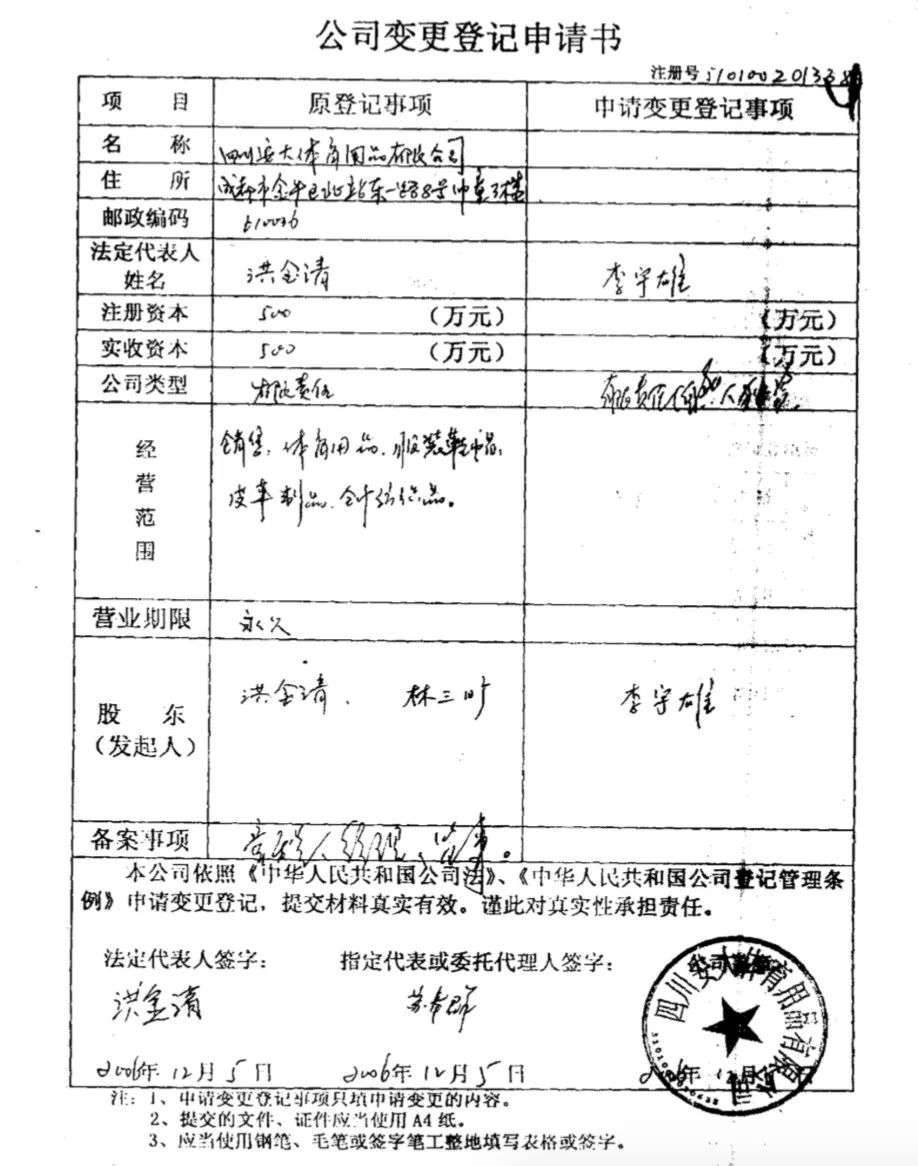 公司变更登记申请书
注册号 5101002013
项 目 原登记事项 申请变更登记事项
名 称 四川安大体育用品有限公司
住 所 成都市金牛区 东一路8号
邮政编码 610036
法定代表人姓名 洪金清 李宇雄
注册资本 500 (万元) (万元)
实收资本 500 (万元) (万元)
公司类型 有限责任 有限责任
经营范围 销售：体育用品、服装鞋 
皮革制品、针纺织品。
营业期限 永久
股 东 洪金清、 林三 李宇雄
(发起人)
备案事项 经理、监事。
本公司依照《中华人民共和国公司法》、《中华人民共和国公司登记管理条
例》申请变更登记，提交材料真实有效。谨此对真实性承担责任。
法定代表人签字： 指定代表或委托代理人签字： 公司
洪金清 苏
四川安大体育用品有限公司
2006年12月5日 2006年12月5日 年 12月 日
注：1、申请变更登记事项只填申请变更的内容。
2、提交的文件、证件应当使用 A4 纸。
3、应当使用钢笔、毛笔或签字笔工整地填写表格或签字。